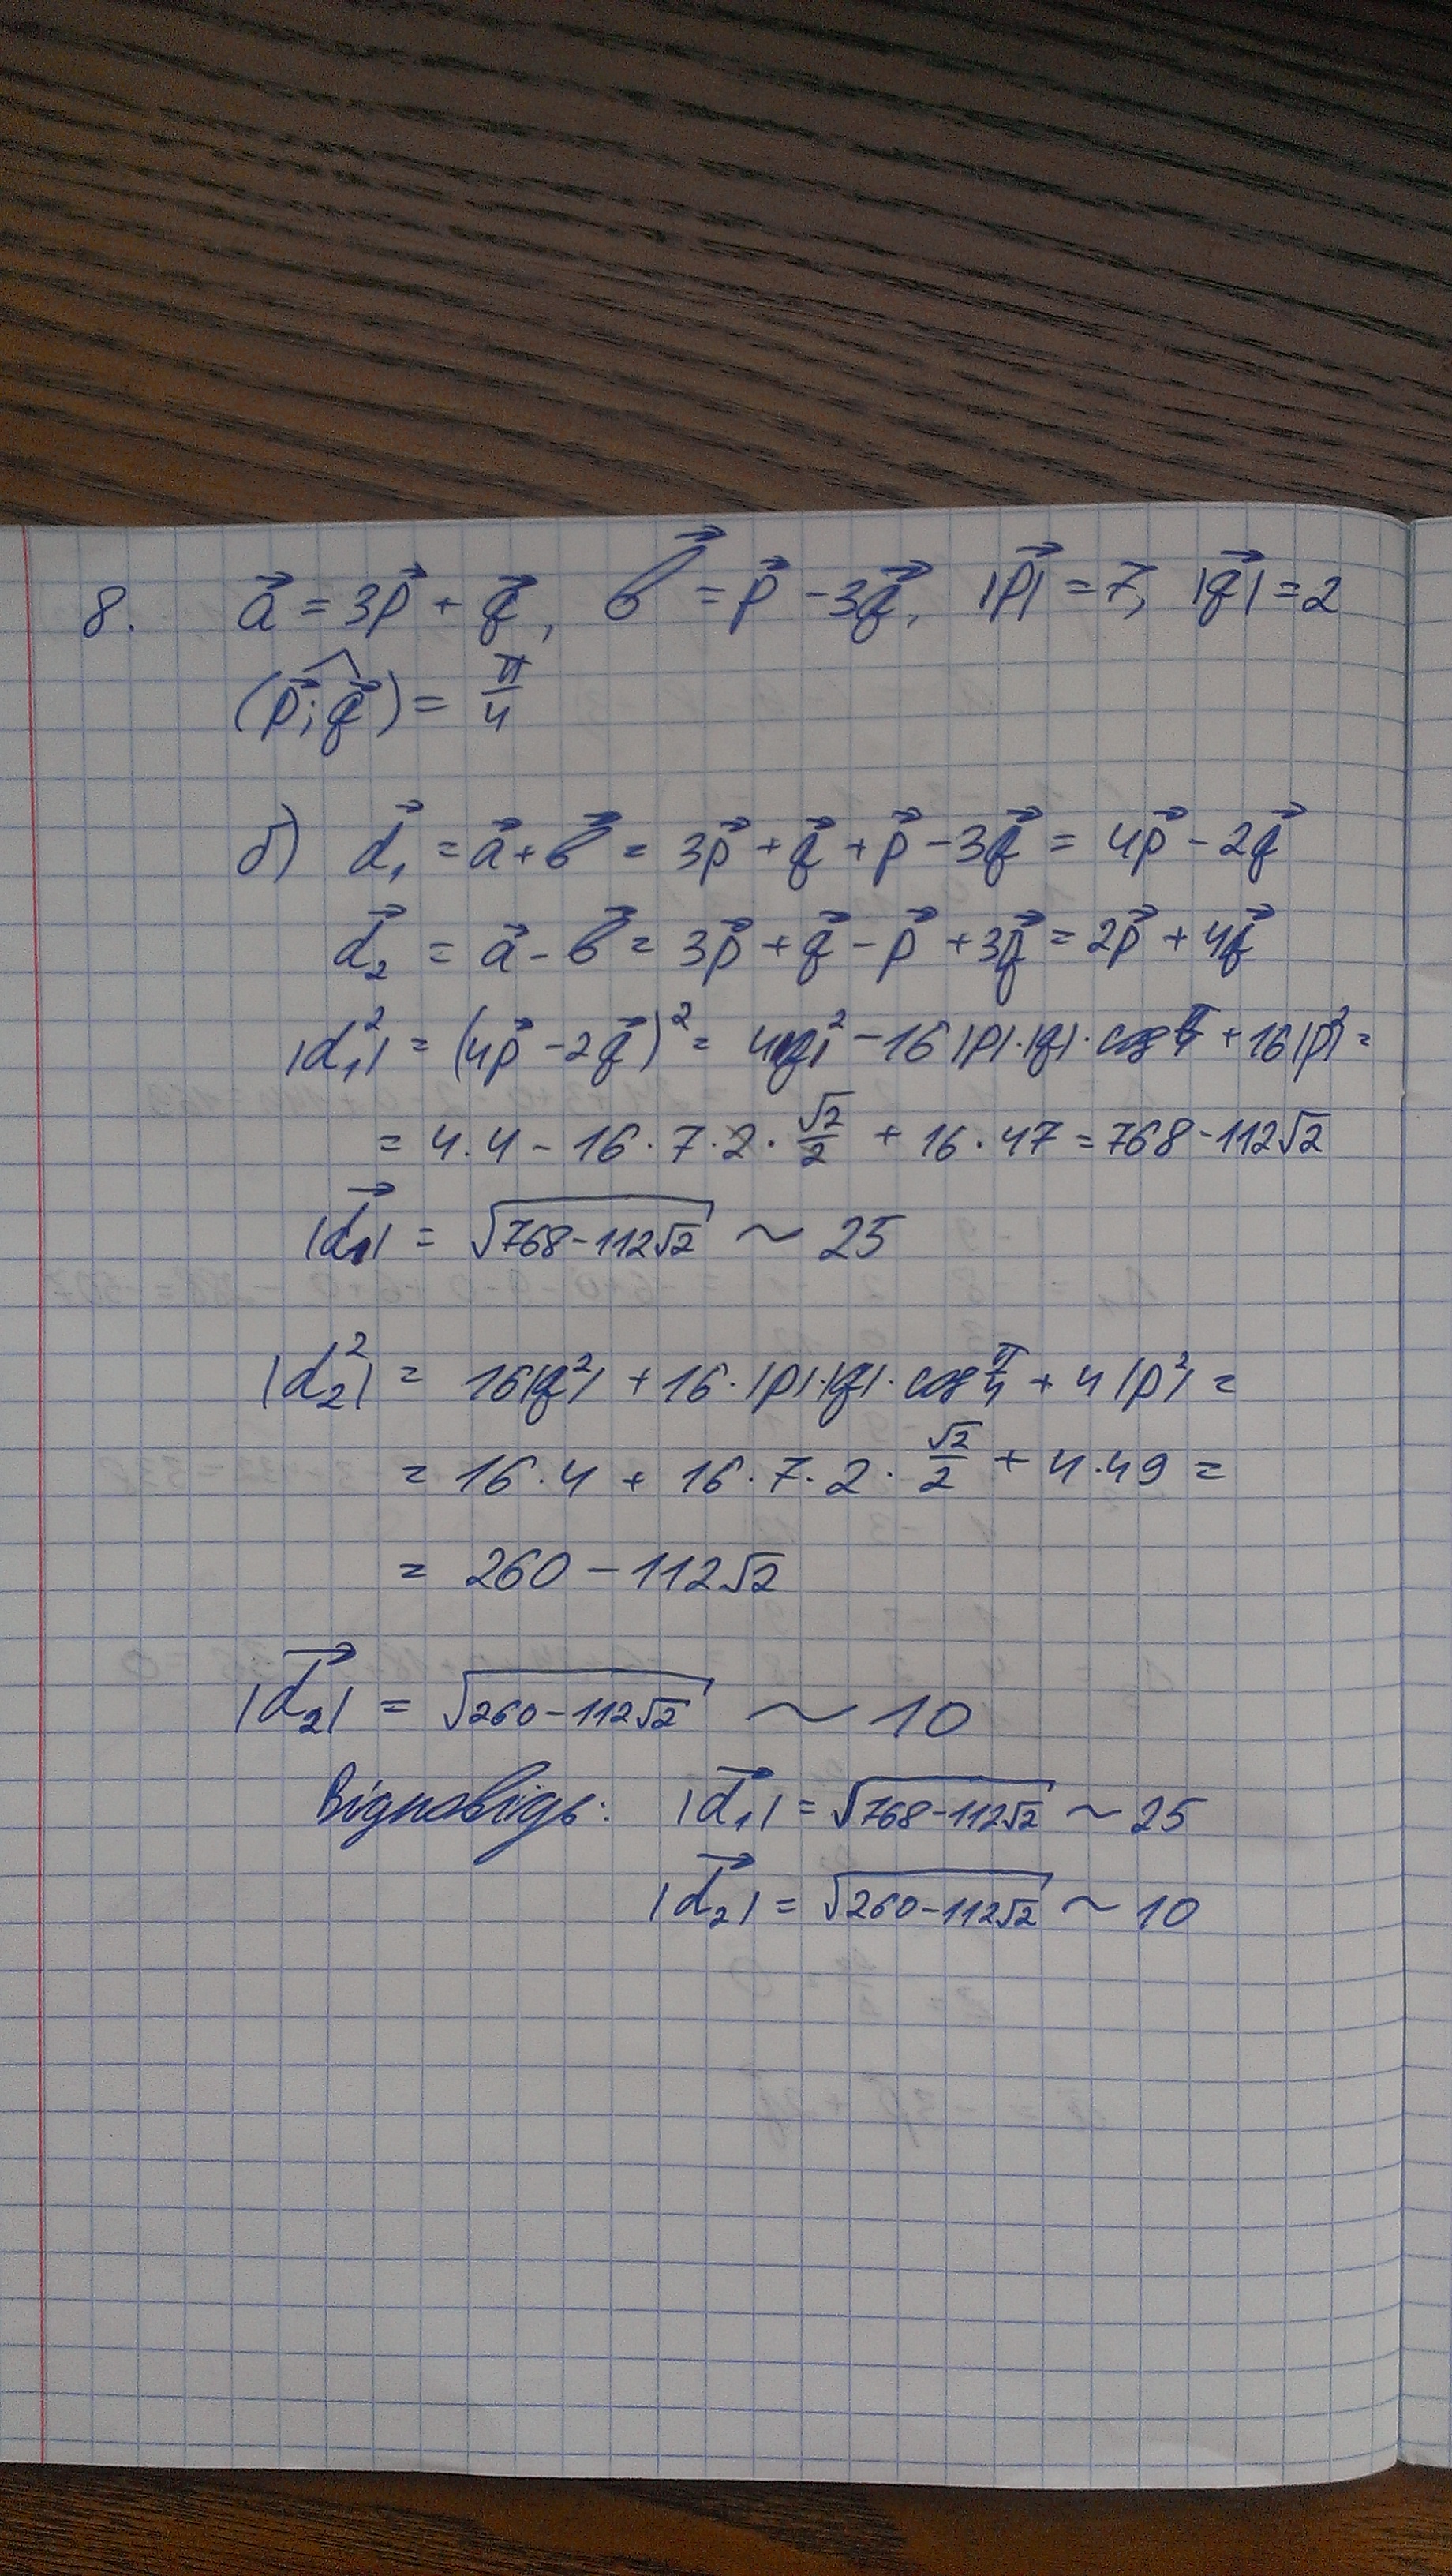 8. a⃗ = 3p⃗ + q⃗, b⃗ = p⃗ - 3q⃗, |p⃗| = 7, |q⃗| = 2
(p⃗; q⃗) = π/4
б) d⃗₁ = a⃗ + b⃗ = 3p⃗ + q⃗ + p⃗ - 3q⃗ = 4p⃗ - 2q⃗
d⃗₂ = a⃗ - b⃗ = 3p⃗ + q⃗ - p⃗ + 3q⃗ = 2p⃗ + 4q⃗
|d₁²| = (4p⃗ - 2q⃗)² = 4|q|² - 16|p|·|q|·cos π/4 + 16|p²| =
= 4·4 - 16·7·2·√2/2 + 16·47 = 768 - 112√2
|d⃗₁| = √(768-112√2) ~ 25
|d₂²| = 16|q²| + 16·|p|·|q|·cos π/4 + 4|p²| =
= 16·4 + 16·7·2·√2/2 + 4·49 =
= 260 - 112√2
|d⃗₂| = √(260-112√2) ~ 10
Відповідь: |d⃗₁| = √(768-112√2) ~ 25
|d⃗₂| = √(260-112√2) ~ 10